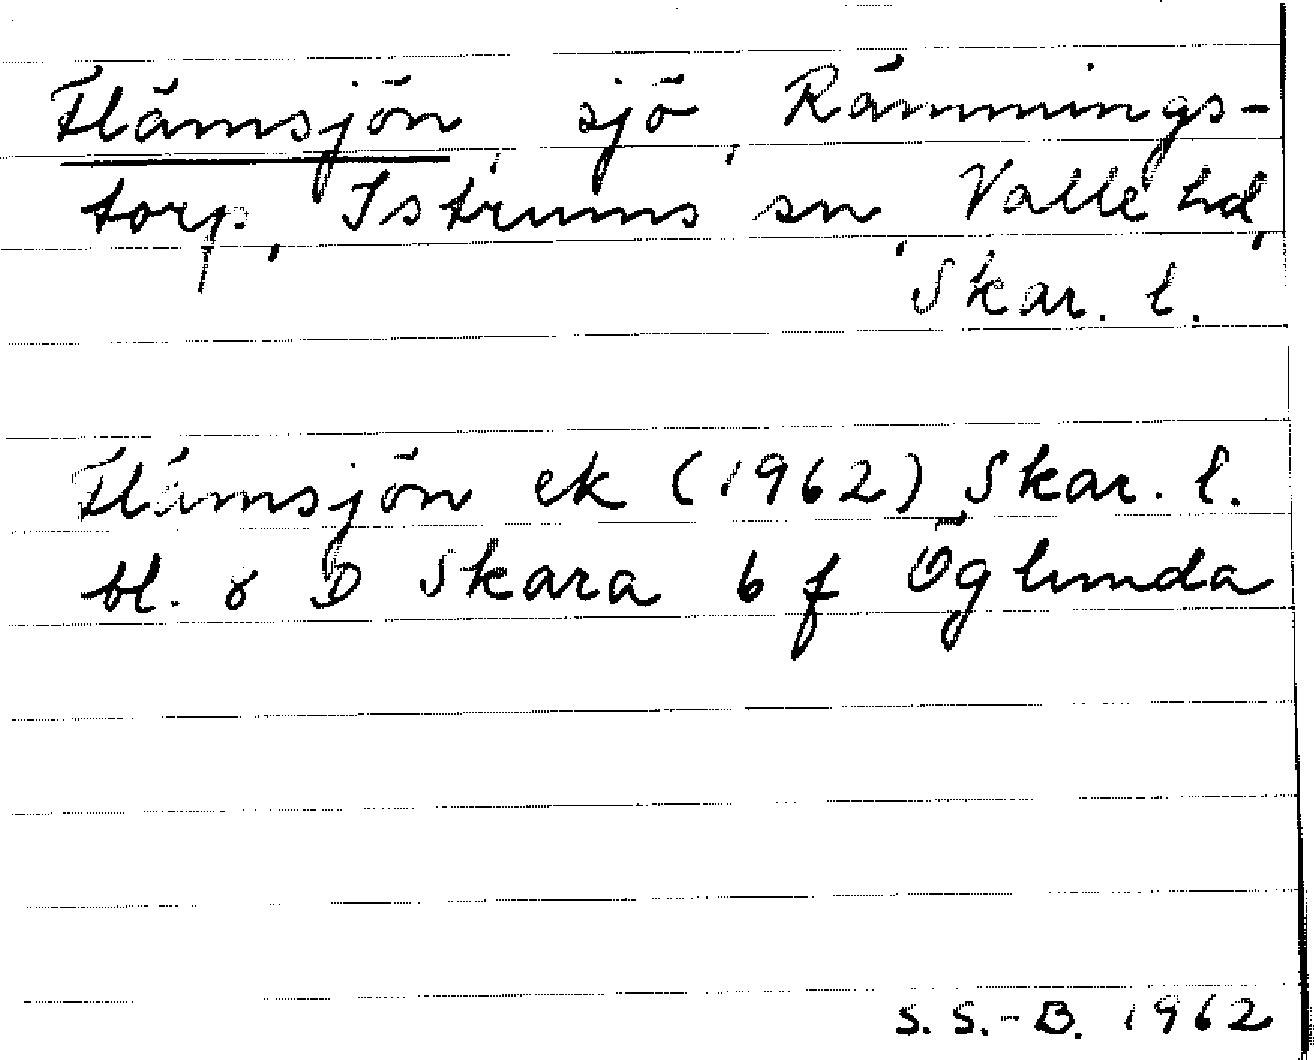 Flämsjön, sjö, Rämmings-
torp, Istrums sn, Valle hd,
Skar. l.
Flämsjön ek (1962) Skar. l.
bl. 8 D Skara 6 f Öglunda
S. S.-B. 1962